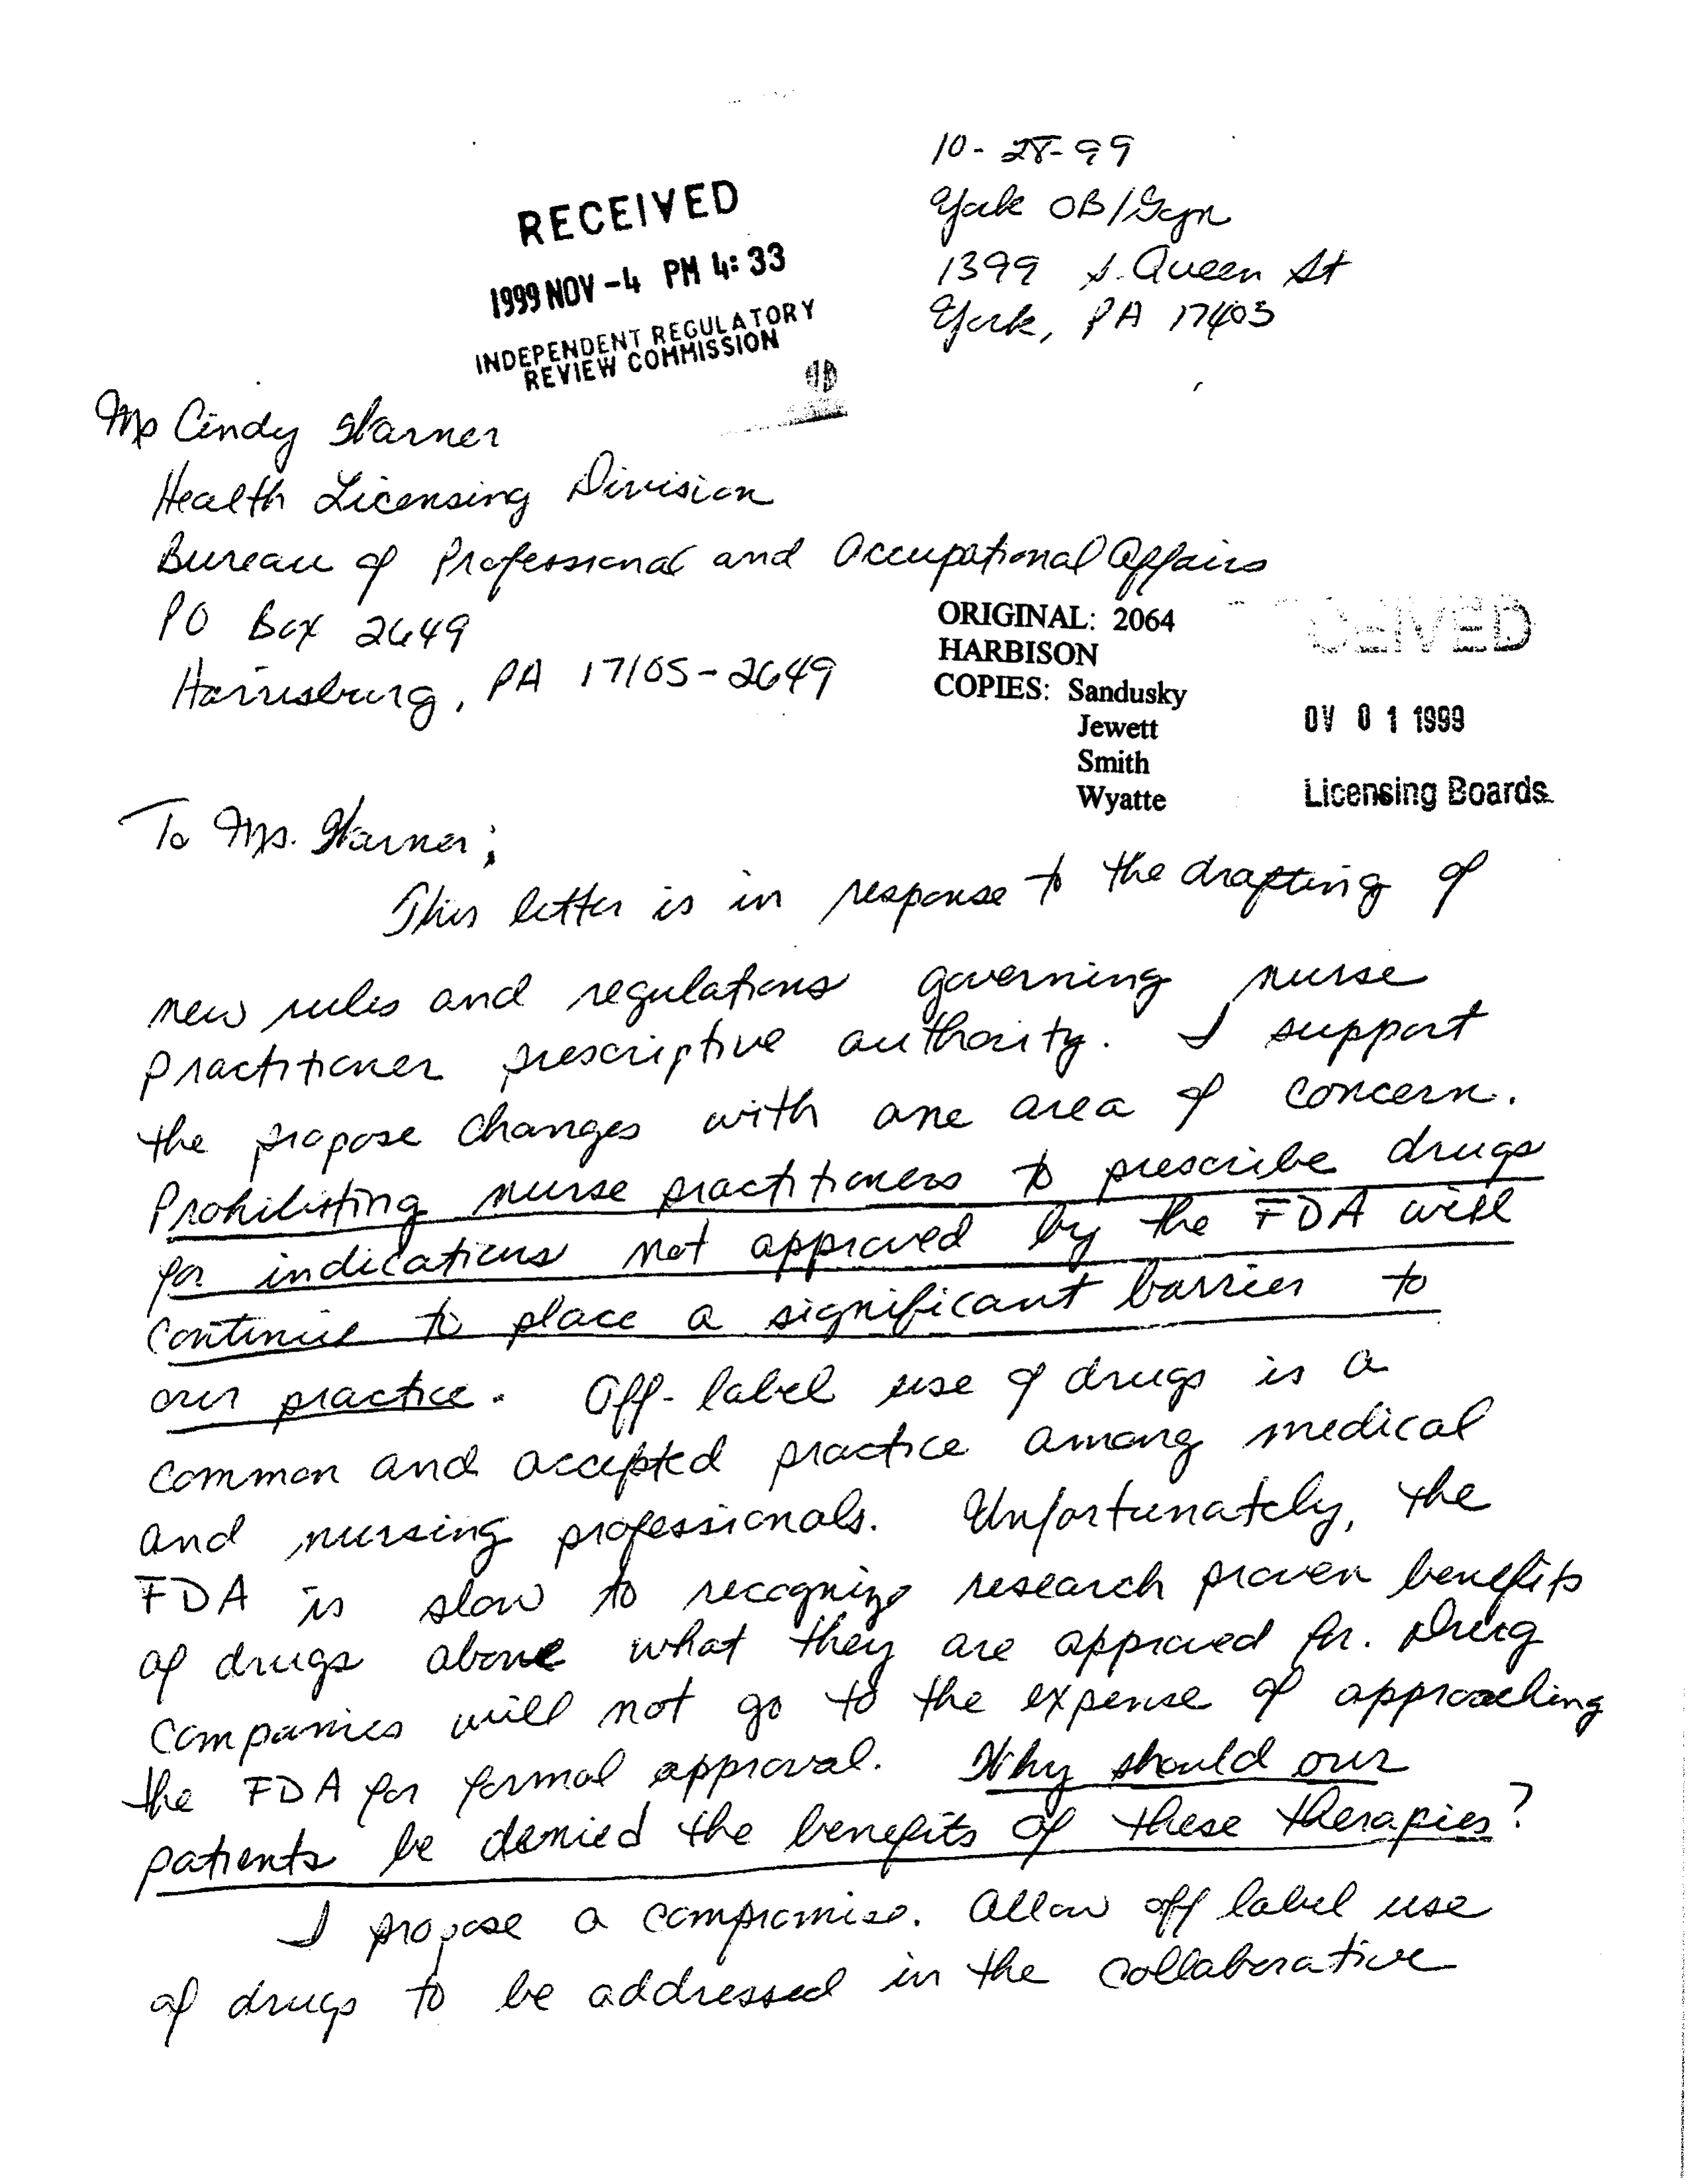 10-28-99
York OB/Gyn
1399 S. Queen St
York, PA 17403
RECEIVED
1999 NOV -4 PM 4:33
INDEPENDENT REGULATORY
REVIEW COMMISSION
Ms Cindy Warner
Health Licensing Division
Bureau of Professional and Occupational Affairs
PO Box 2649
Harrisburg, PA 17105-2649
ORIGINAL: 2064
HARBISON
COPIES: Sandusky
Jewett
Smith
Wyatte
CEIVED
OV 01 1999
Licensing Boards
To Ms. Warner;
This letter is in response to the drafting of
new rules and regulations governing nurse
practitioner prescriptive authority. I support
the propose changes with one area of concern.
Prohibiting nurse practitioners to prescribe drugs
for indications not approved by the FDA will
continue to place a significant barrier to
our practice. Off-label use of drugs is a
common and accepted practice among medical
and nursing professionals. Unfortunately, the
FDA is slow to recognize research proven benefits
of drugs above what they are approved for. Drug
companies will not go to the expense of approaching
the FDA for formal approval. Why should our
patients be denied the benefits of these therapies?
I propose a compromise. Allow off label use
of drugs to be addressed in the collaborative